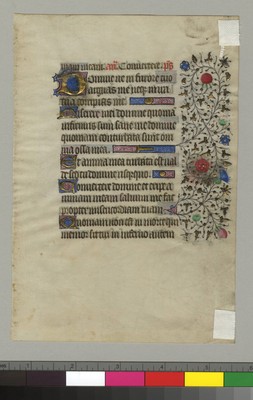 meam intrait. an. Convertere. ps
Domine ne in furore tuo
arguas me neqz in ira
tua corripias me.
Miserere mei domine quoniam
infirmus sum sana me domine
quoniam conturbata sunt om
nia ossa mea.
Et anima mea turbata est val
de sed tu domine usquequo.
Convertere domine et eripe a
nimam meam salvum me fac
propter misericordiam tuam.
Quoniam non est in morte qui
memor sit tui in inferno autem